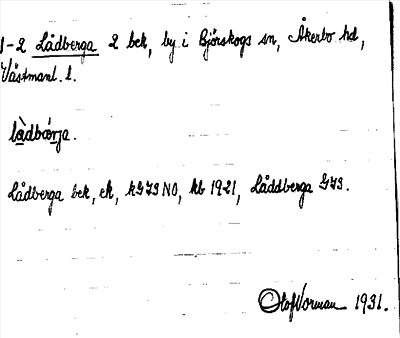 1-2 Lådberga 2 bek, by i Björskogs sn, Åkerbo hd,
Västmanl. l.
lådbärja.
Lådberga bek, ek, kG7S NO, kb 1921, Låddberga G7S.
Olof Vorman 1931.